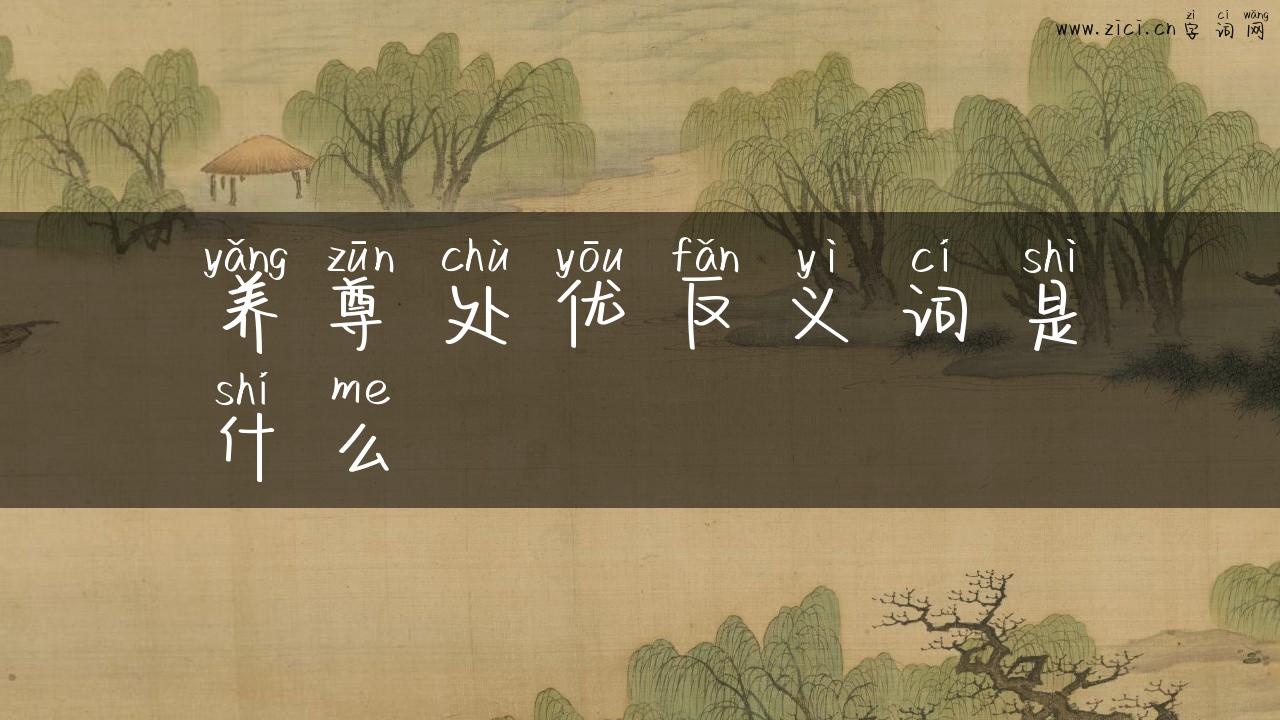 zì cí wǎng
www.zici.cn 字 词 网
yǎng zūn chù yōu fǎn yì cí shì
养 尊 处 优 反 义 词 是
shí me
什 么